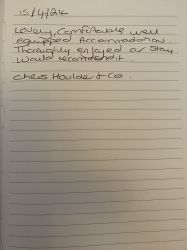 15/4/24
Lovely, Comfortable well
equipped Accommodation.
Thoroughly enjoyed our Stay
Would recommend it.
Chris Houlder & Co.